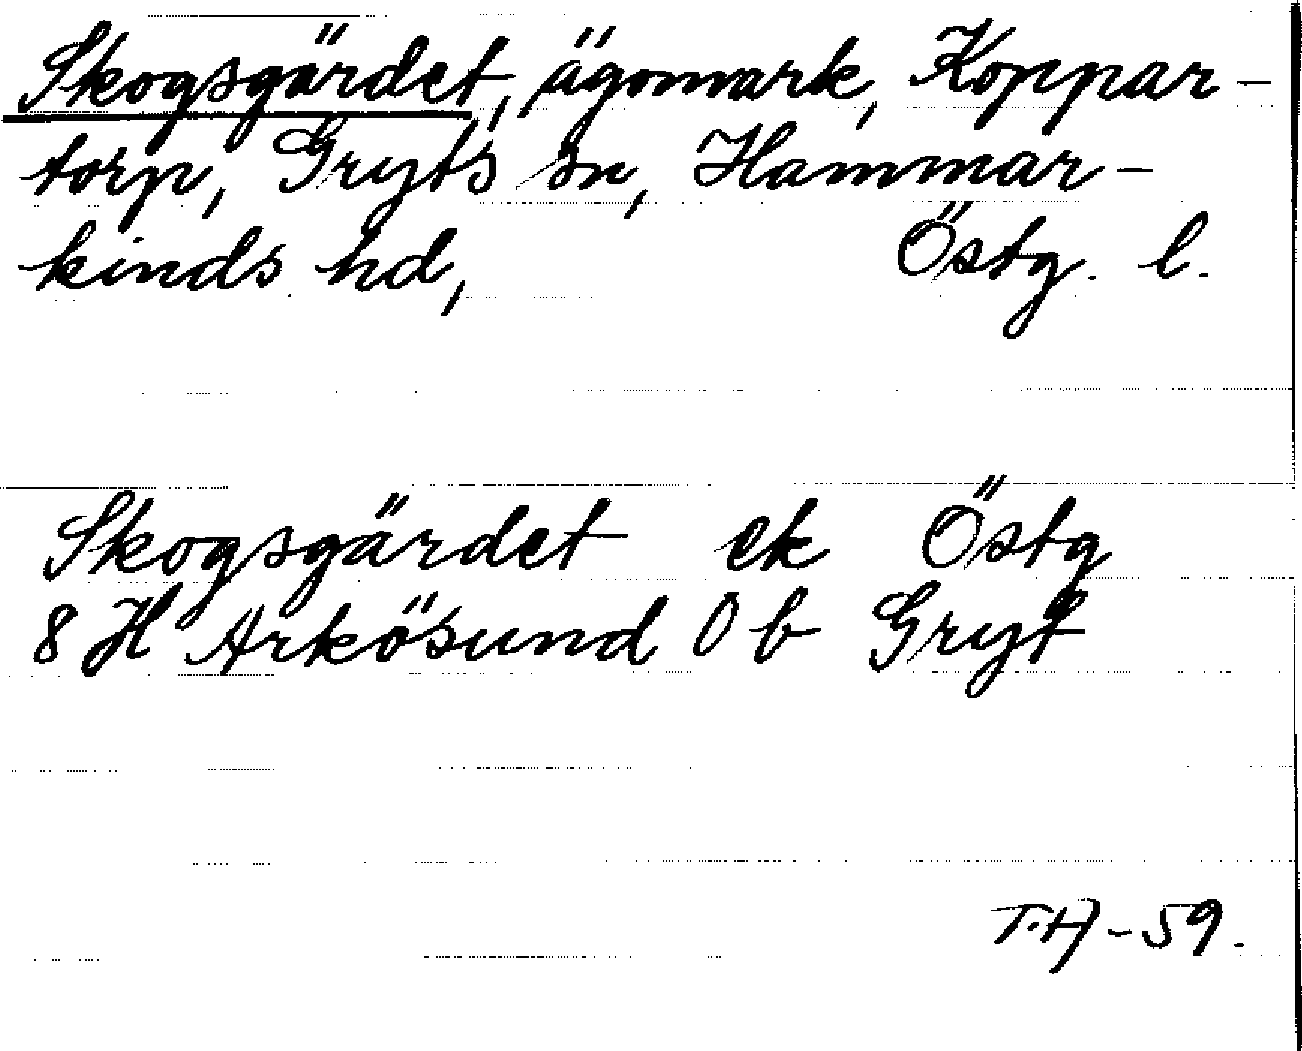 Skogsgärdet, ägomark, Koppar-
torp, Gryts sn, Hammar-
kinds hd, Östg. l.
Skogsgärdet ek Östg
8 H Arkösund 0 b Gryt
T.H-59.